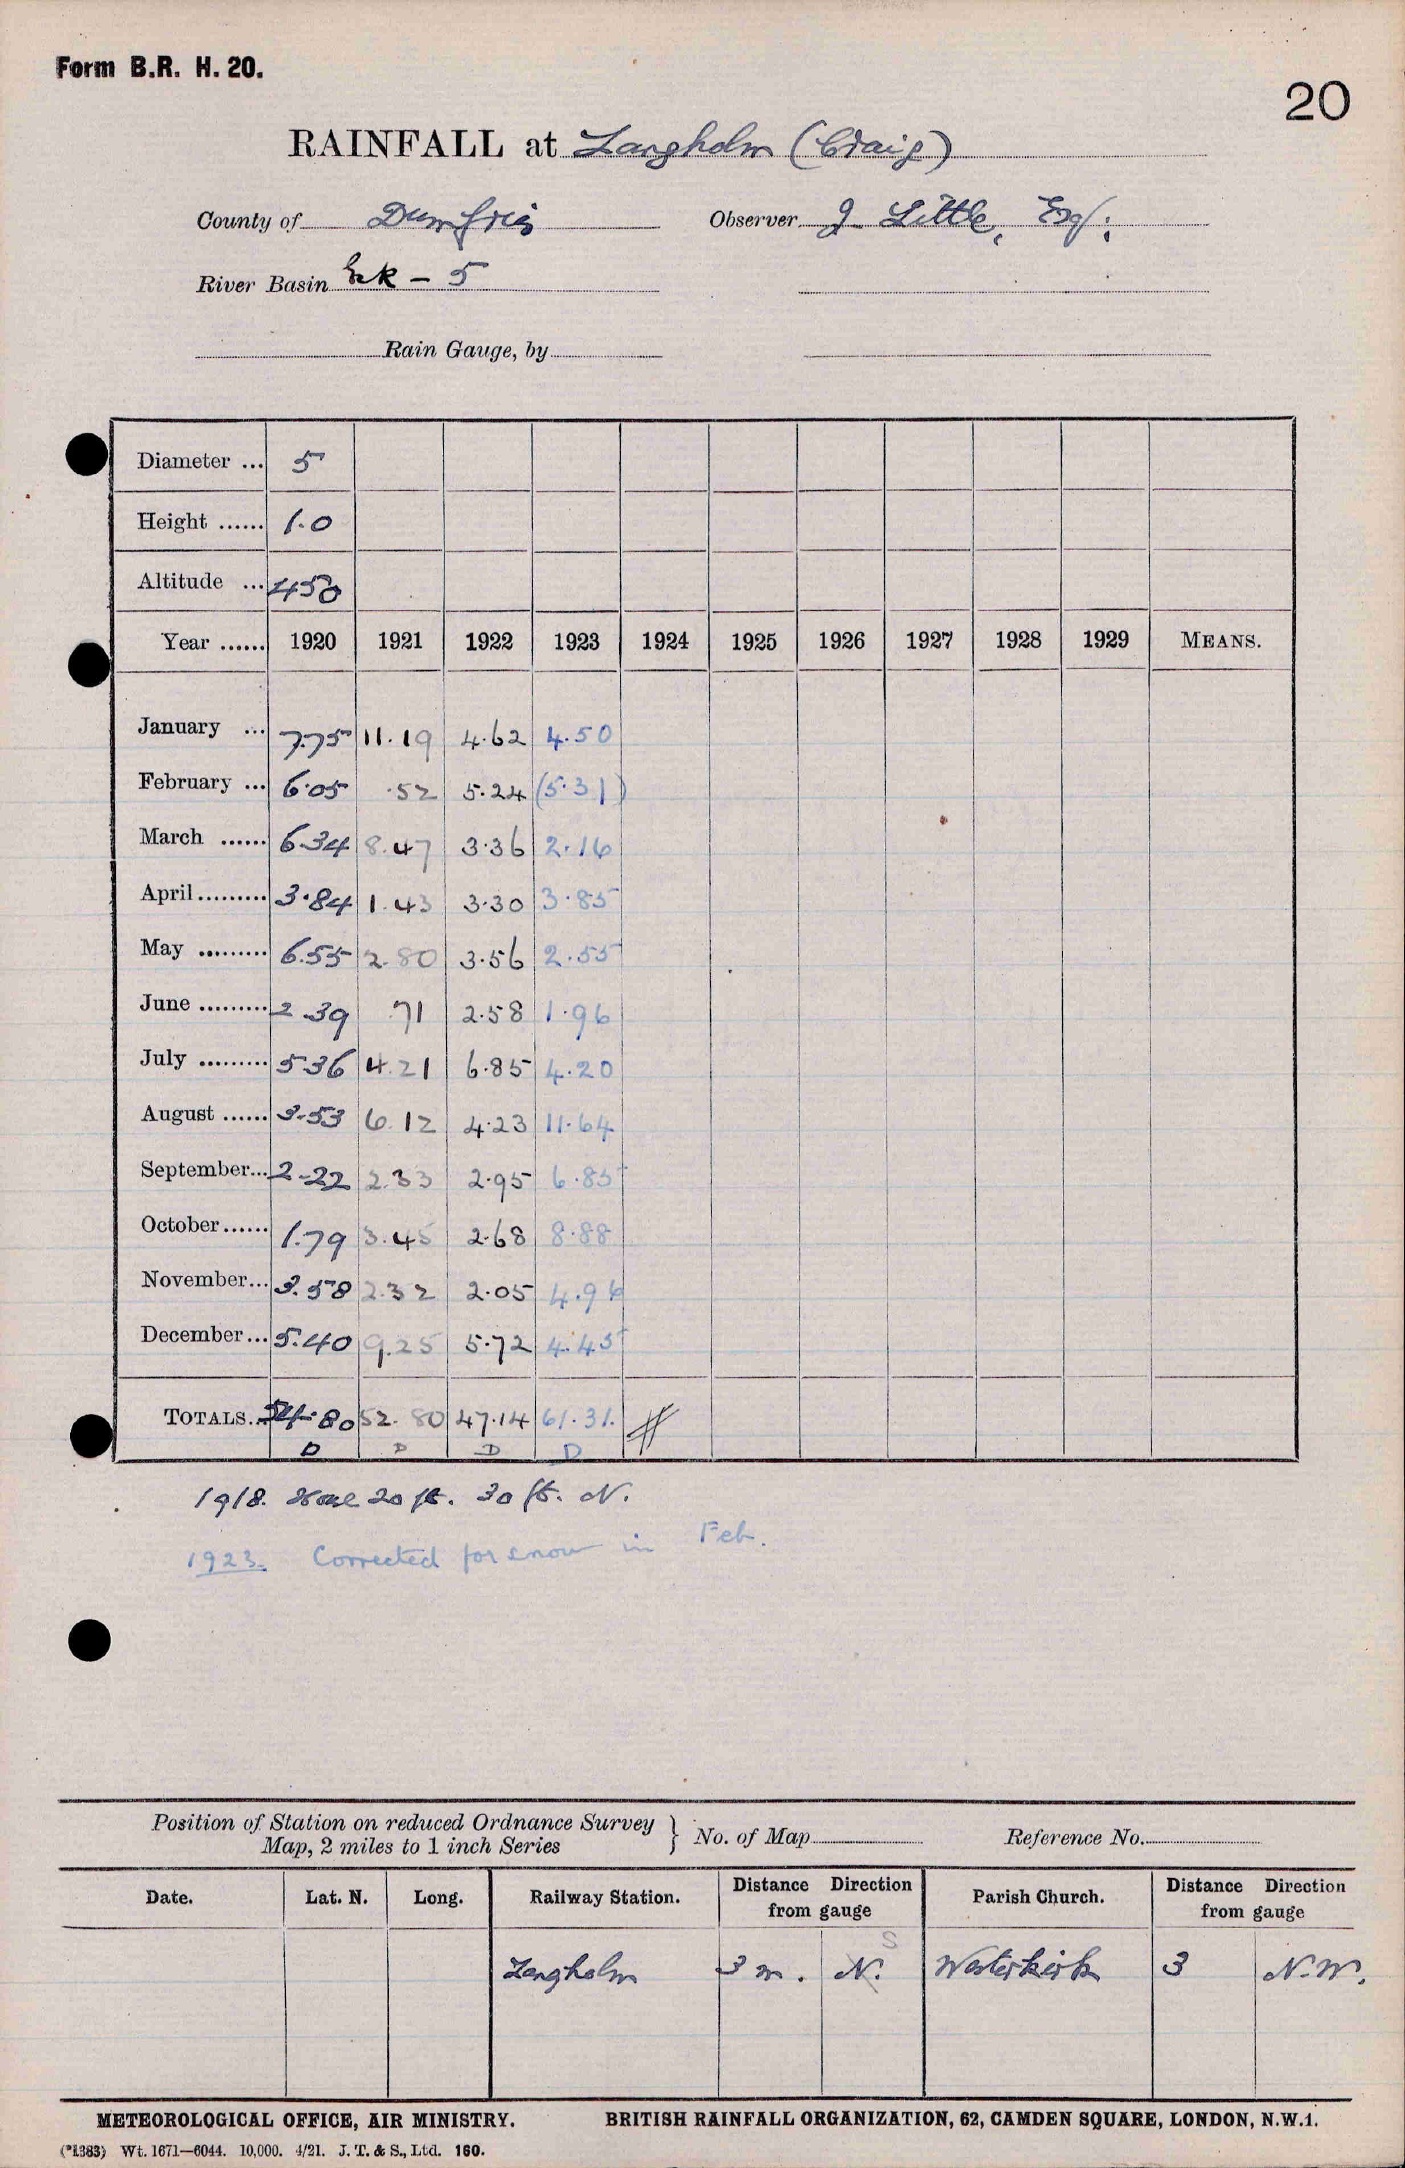 Form B.R. H. 20.
20
RAINFALL at Langholm (Craig)
County of Dumfries Observer J Little, Esq;
River Basin Esk - 5
Rain Gauge, by
Diameter ... 5
Height ...... 1.0
Altitude ... 450
Year ...... 1920 1921 1922 1923 1924 1925 1926 1927 1928 1929 MEANS.
January ... 7.75 11.19 4.62 4.50
February ... 6.05 .52 5.24 (5.31)
March ...... 6.34 8.47 3.36 2.16
April ......... 3.84 1.43 3.30 3.85
May ......... 6.55 2.80 3.56 2.55
June ......... 2.39 .71 2.58 1.96
July ......... 5.36 4.21 6.85 4.20
August ...... 3.53 6.12 4.23 11.64
September... 2.22 2.33 2.95 6.85
October...... 1.79 3.45 2.68 8.88
November... 3.58 2.32 2.05 4.96
December... 5.40 9.25 5.72 4.45
TOTALS... 54.80 52.80 47.14 61.31.
D D D D
1918. House 20 ft. 30 ft. N.
1923. Corrected for snow in Feb.
Position of Station on reduced Ordnance Survey
Map, 2 miles to 1 inch Series } No. of Map Reference No.
Date. Lat. N. Long. Railway Station. Distance Direction from gauge Parish Church. Distance Direction from gauge
S
Langholm 3 m. N. Westerkirk 3 N.W.
METEOROLOGICAL OFFICE, AIR MINISTRY. BRITISH RAINFALL ORGANIZATION, 62, CAMDEN SQUARE, LONDON, N.W.1.
(*1383) Wt. 1671—6044. 10,000. 4/21. J. T. & S., Ltd. 160.